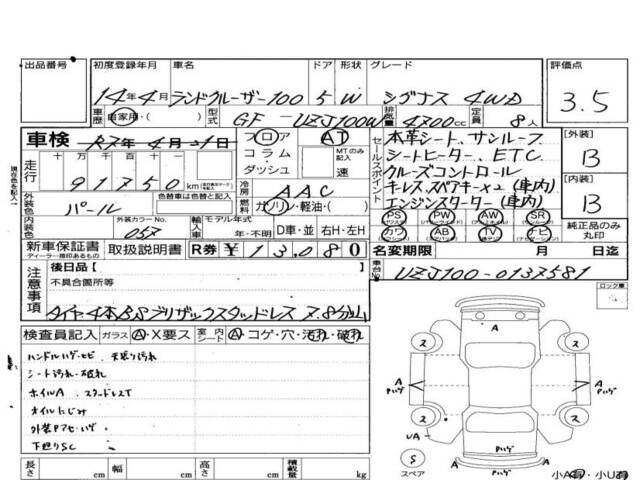 出品番号 初度登録年月 車名 ドア 形状 グレード 評価点
14年4月 ランドクルーザー100 5 W シグナス 4WD 3.5
車歴 自家用・( ) 型式 GF-UZJ100W 排気量 4700cc 定員 8人
車検 R7年4月21日 フロア AT 本革シート、サンルーフ 【外装】
コラム MTのみ記入 シートヒーター、ETC B
走行 十万 万 千 百 十 一 ダッシュ 速 セールスポイント クルーズコントロール
91750km 冷房 AAC キーレス、スペアキー×2(車内) 【内装】
外装色 パール 色替車は色替と記入 燃料 ガソリン・軽油・( ) エンジンスターター(車内) B
PS PW AW SR
内装色 外装カラーNo. 057 輸入車 モデル年式 年・不明 D車・並 右H・左H カワ AB TV ナビ 純正品のみ丸印
新車保証書 取扱説明書 R券 ¥13,080 名変期限 月 日迄
ディーラー捺印あるもの
注意事項 後日品【 】 車台No. UZJ100-0137581
不具合箇所等 ロック車
タイヤ4本BSブリザックスタッドレス7.8分山
検査員記入 ガラス A・X要ス 室内シート A・コゲ・穴・汚れ・破れ
ハンドルハゲ・キビ 天張り汚れ
シート汚れ・破れ
ホイルA スタッドレスT
オイルにじみ
外装Pアセハゲ
下廻りSC
長さ cm 幅 cm 高さ cm 積載量 kg
A
ス ス
A Pハゲ Pハゲ A Pハゲ
ス ス
UA
S スペア Pハゲ A 小A有・小U有